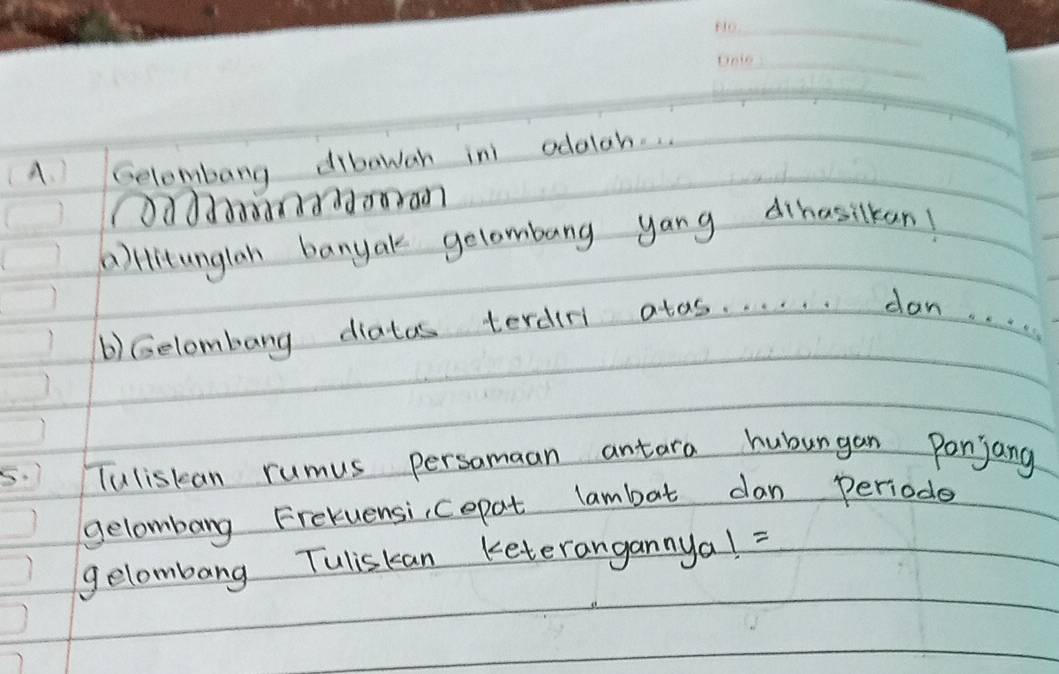 No.
Date :
4.) Gelombang dibawah ini adalah...
a) Hitunglah banyak gelombang yang dihasilkan!
b) Gelombang diatas terdiri atas...... dan ....
5.) Tuliskan rumus persamaan antara hubungan Panjang
gelombang Frekuensi, Cepat lambat dan periode
gelombang Tuliskan keterangannya! =